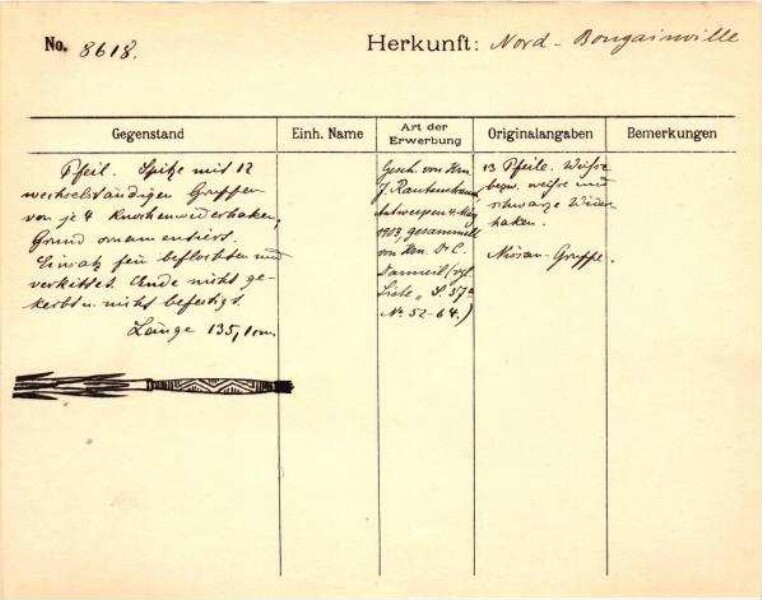 No. 8618.
Herkunft: Nord - Bougainville
Gegenstand
Einh. Name
Art der Erwerbung
Originalangaben
Bemerkungen
Pfeil. Spitze mit 12
wechselständigen Gruppen
von je 4 Knochenwiederhaken,
Grund ornamentiert.
Einsatz fein beflochten und
verkittet. Ende nicht ge-
kerbt u. nicht befestigt.
Länge 135,1 cm.
Gesch. von Hrn.
J. Rautenstrauch,
Antwerpen 4. März
1903, gesammelt
von Hrn. Dr C.
Danneil (vgl.
Liste, S. 57a
No 52-64.)
13 Pfeile. Weisse
bezw. weisse und
schwarze Wieder
haken.
Nissan-Gruppe.